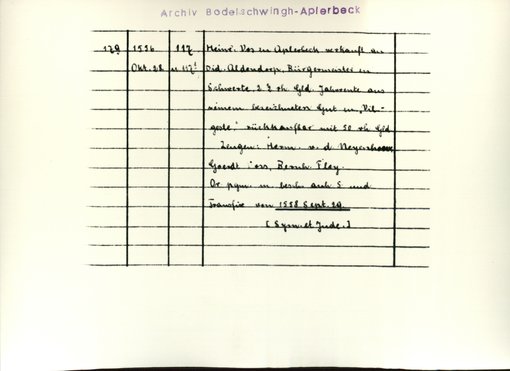 Archiv Bodelschwingh-Aplerbeck
179 1556 117 Heinr. Vos in Aplerbeck verkauft an
Okt. 28 u 117¹ Did. Aldendorp, Bürgermeister in
Schwerte, 2 rh Gld. Jahrrente aus
seinem bezeichneten Gut in
rückkaufbar mit 50 rh Gld
Zeugen: Herm. v. d.
Goerdt Voss, Bernh. Fley.
Or pgm. m. besch. anh S und
Transfix von 1558 Sept. 29
[Sym. et Jude.]